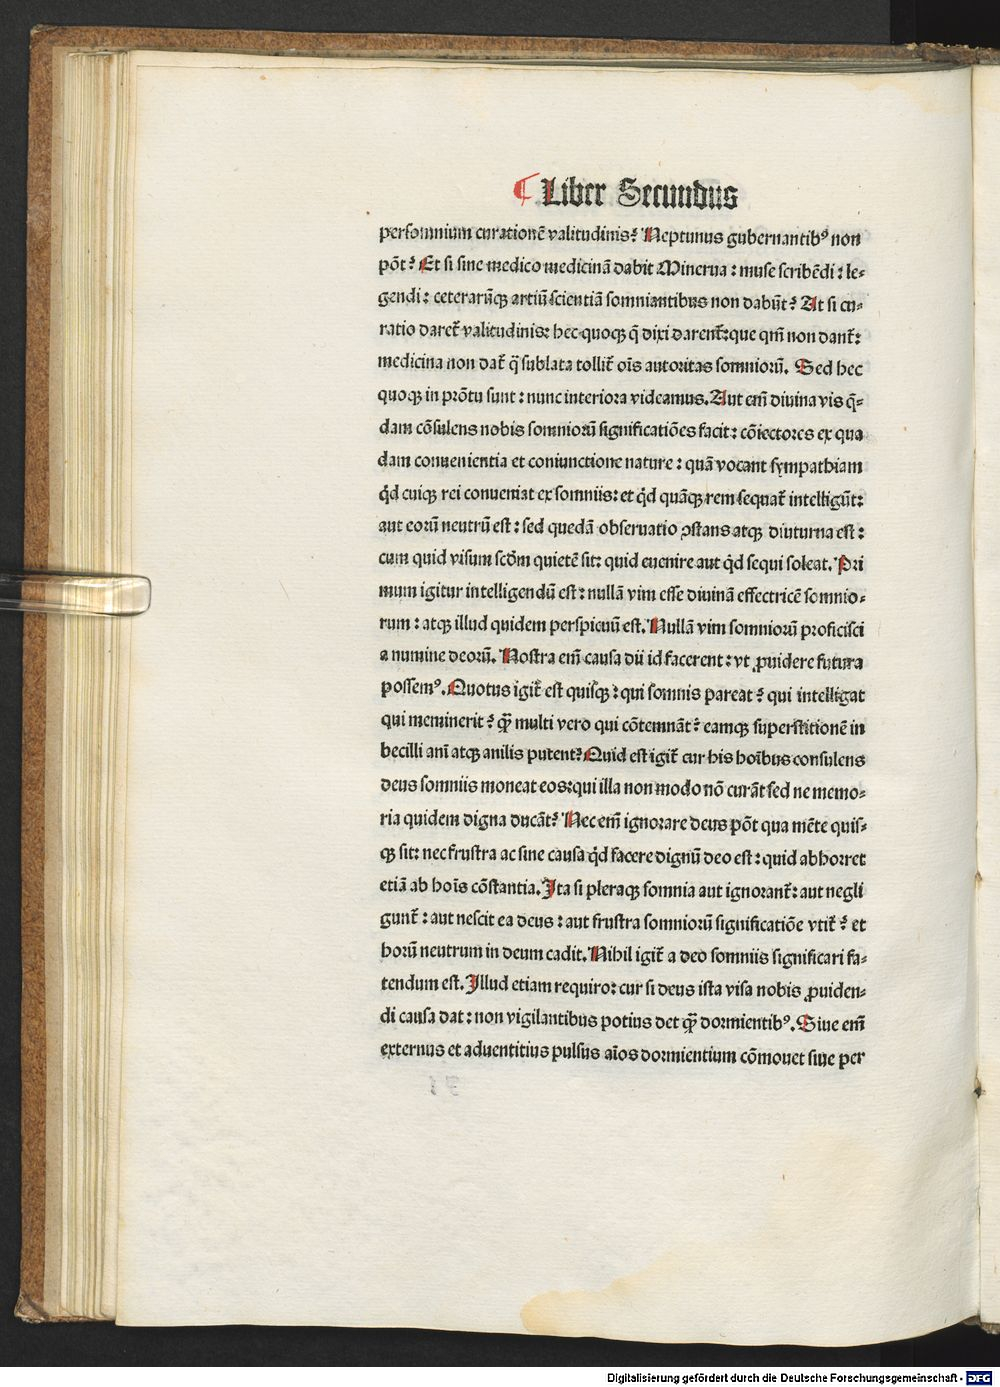 ¶ Liber Secundus
persomnium curationē valitudinis? Neptunus gubernantibꝰ non
pōt? Et si sine medico medicinā dabit Minerua: muse scribēdi: le⸗
gendi: ceterarūqꝫ artiū scientiā somniantibus non dabūt? At si cu⸗
ratio daret᷑ valitudinis: hec quoqꝫ q̄ dixi darent᷑: que qm̄ non dant᷑:
medicina non dat᷑ q̄ sublata tollit᷑ oīs autoritas somniorū. Sed hec
quoqꝫ in prōtu sunt: nunc interiora videamus. Aut em̄ diuina vis q̄⸗
dam cōsulens nobis somniorū significatiōes facit: cōiectores ex qua
dam conuenientia et coniunctione nature: quā vocant sympathiam
qͥd cuiqꝫ rei conueniat ex somniis: et qͥd quāqꝫ rem sequat᷑ intelligūt:
aut eorū neutrū est: sed quedā obseruatio ꝯstans atqꝫ diuturna est:
cum quid visum scd̄m quietē sit: quid euenire aut qͥd sequi soleat. Pri
mum igitur intelligendū est: nullā vim esse diuinā effectricē somnio⸗
rum: atqꝫ illud quidem perspicuū est. Nullā vim somniorū proficisci
a numine deorū. Nostra em̄ causa dii id facerent: vt ꝓuidere futura
possemꝰ. Quotus igit᷑ est quisqꝫ: qui somnis pareat? qui intelligat
qui meminerit? qꝫ̄ multi vero qui cōtemnāt? eamqꝫ superstitionē in
becilli ani̅ atqꝫ anilis putent? Quid est igit᷑ cur his hoībus consulens
deus somniis moneat eos: qui illa non modo nō curāt sed ne memo⸗
ria quidem digna ducāt? Nec em̄ ignorare deus pōt qua mēte quis⸗
qꝫ sit: nec frustra ac sine causa qͥd facere dignū deo est: quid abhorret
etiā ab hoīs cōstantia. Ita si pleraqꝫ somnia aut ignorant᷑: aut negli
gunt᷑: aut nescit ea deus: aut frustra somniorū significatiōe vtit᷑? et
horū neutrum in deum cadit. Nihil igit᷑ a deo somniis significari fa⸗
tendum est. Illud etiam requiro: cur si deus ista visa nobis ꝓuiden⸗
di causa dat: non vigilantibus potius det qꝫ̄ dormientibꝰ. Siue em̄
externus et aduentitius pulsus aīos dormientium cōmouet siue per
Digitalisierung gefördert durch die Deutsche Forschungsgemeinschaft - DFG